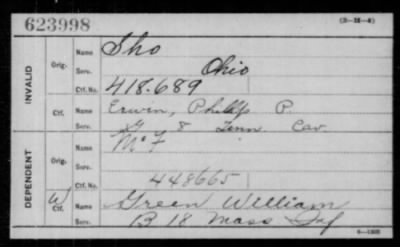 623998
(3-26-4)
INVALID
Orig.
Name
Sho
Serv.
Ohio
Ctf. No.
418.689
Ctf.
Name
Erwin, Phillip P.
Serv.
G 8 Tenn Cav.
DEPENDENT
Orig.
Name
McF
Serv.
Ctf. No.
448665
W
Ctf.
Name
Green William
Serv.
B 18 Mass Inf